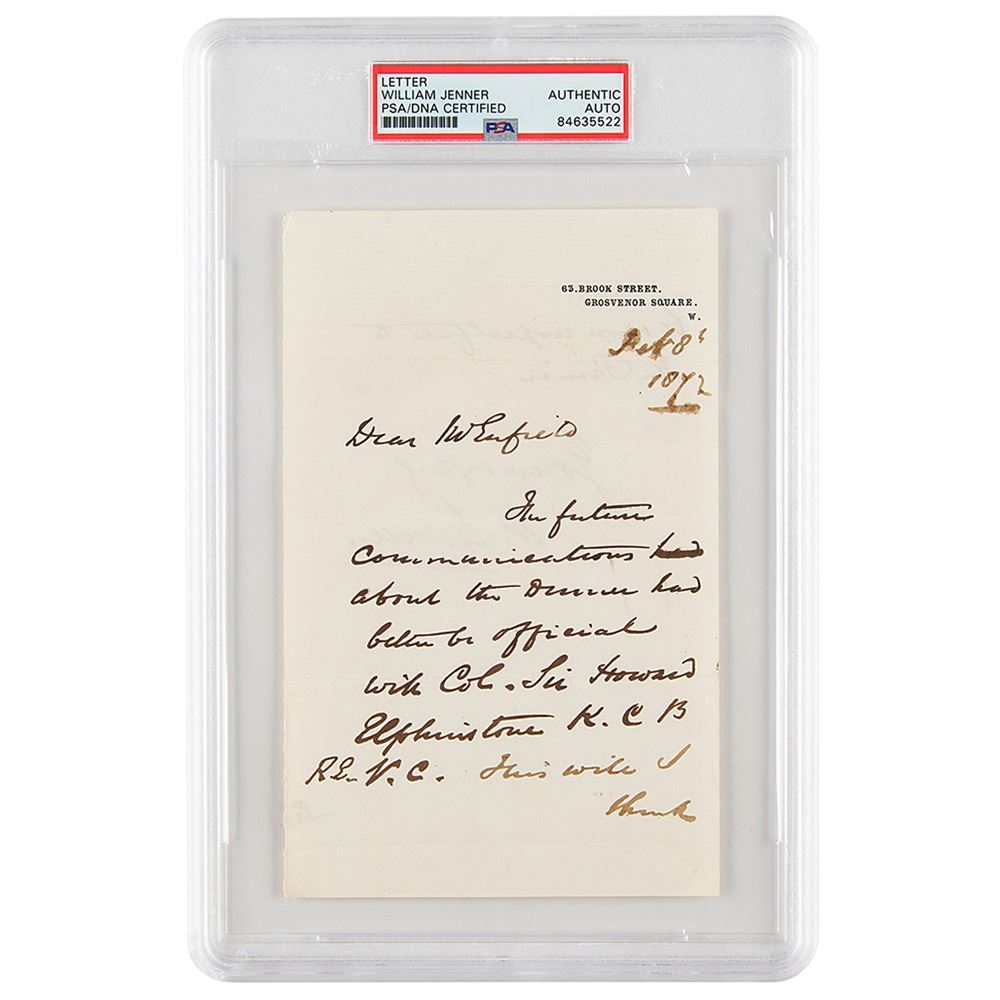 LETTER
WILLIAM JENNER
PSA/DNA CERTIFIED
AUTHENTIC
AUTO
84635522
PSA
63. BROOK STREET.
GROSVENOR SQUARE.
W.
8
1872
Dear Enfield
The future
communications had
about the Dinner had
better be official
with Col. Sir Howard
Elphinstone K. C B
R.E. V. C. This will I
think